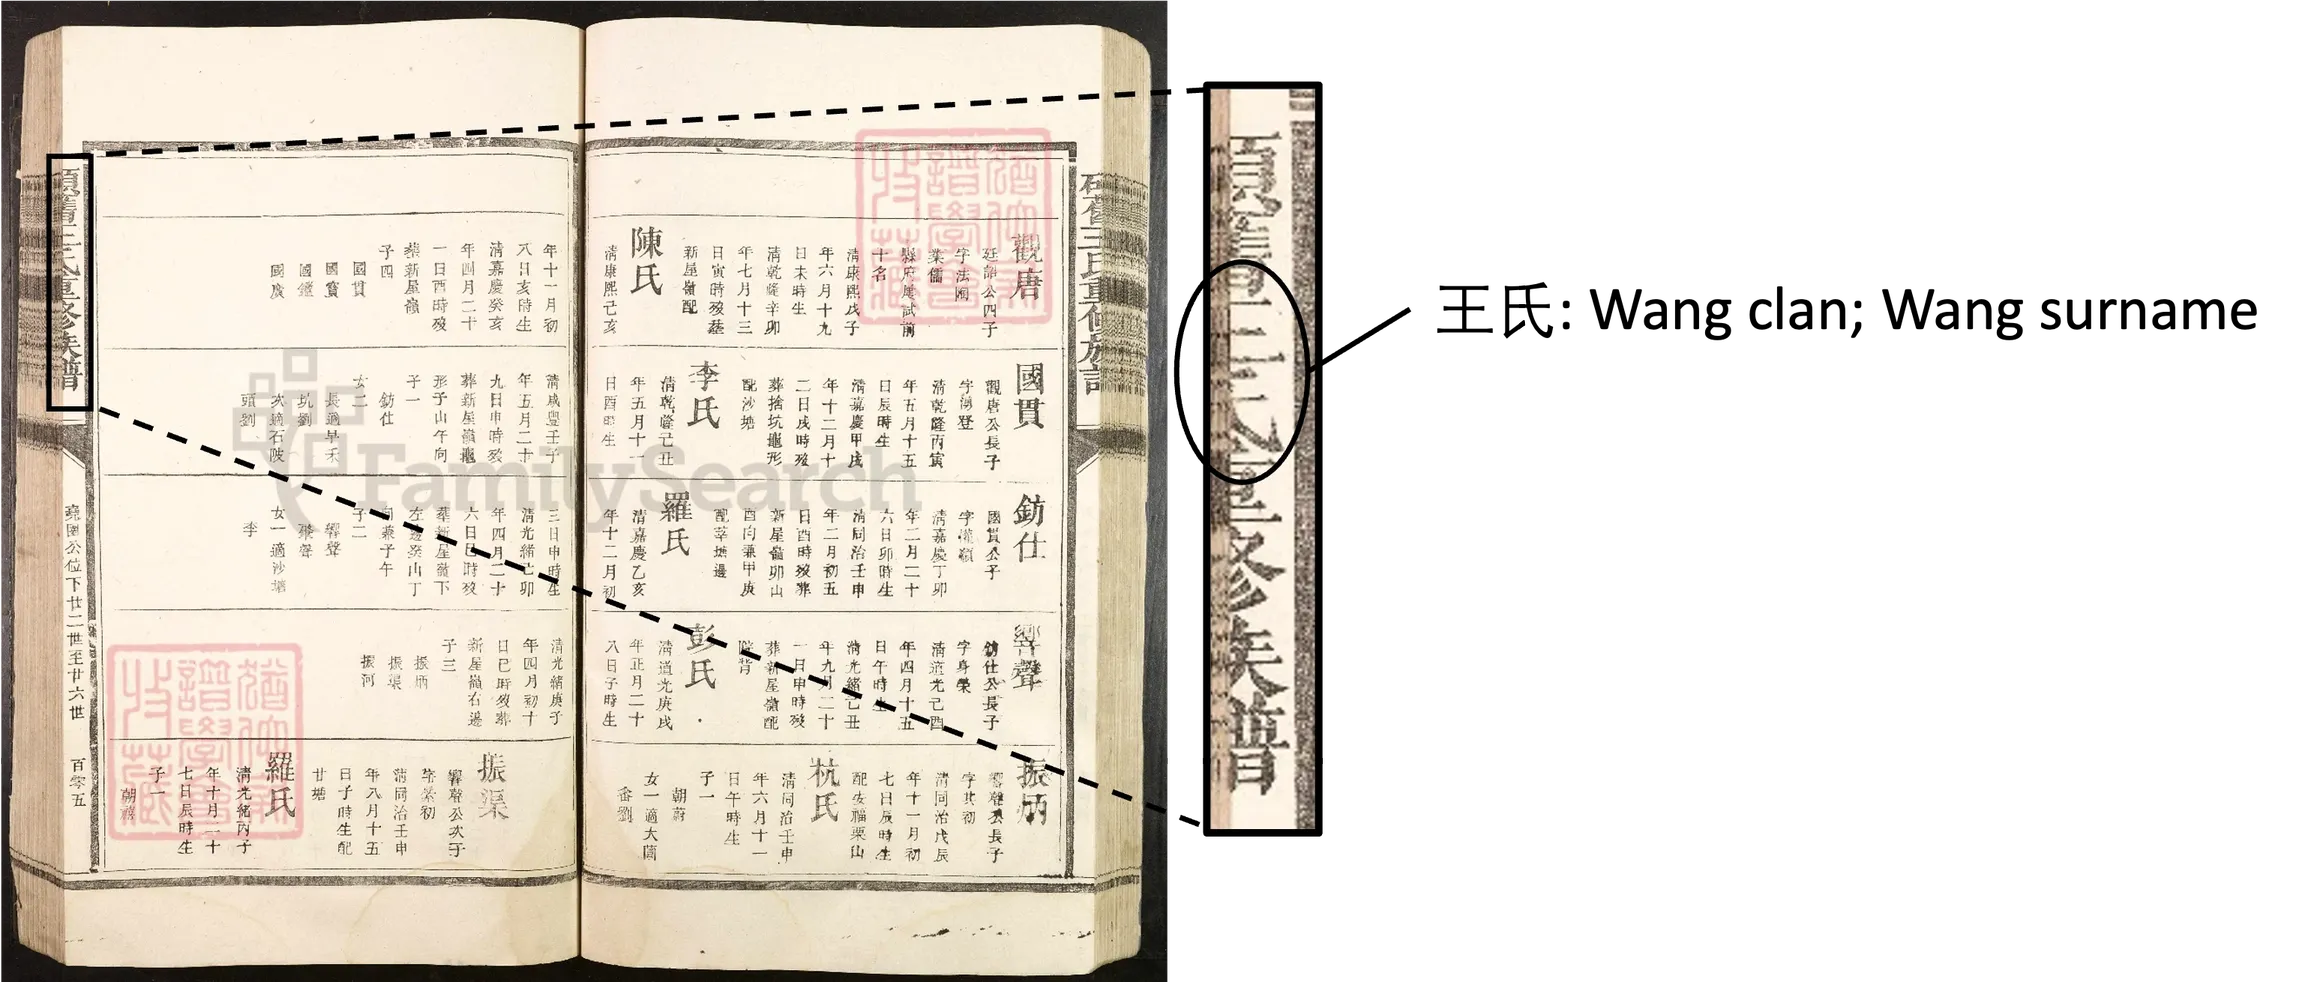 王氏: Wang clan; Wang surname
王氏重修族譜
觀唐
廷詔公四子
字法園
業儒
縣府屢試前
十名
清康熙戊子
年六月十九
日未時生
清乾隆辛卯
年七月十三
日寅時歿葬
新屋嶺配
陳氏
清康熙己亥
年十一月初
八日亥時生
清嘉慶癸亥
年四月二十
一日酉時歿
葬新屋嶺
子四
國貫
國寶
國鑑
國廣
國貫
觀唐公長子
清乾隆丙寅
年五月十五
日辰時生
清嘉慶甲戌
年十二月十
二日戌時歿
葬捨坑龜形
配沙塘
李氏
清乾隆己丑
年五月十一
日酉時生
清咸豐壬子
年五月二十
九日申時歿
葬新屋嶺龜
形子山午向
子一
鈁仕
女二
長適早禾
坑劉
次適石陂
頭劉
鈁仕
國貫公子
清嘉慶丁卯
年二月二十
六日卯時生
清同治壬申
年二月初五
日酉時歿葬
新屋嶺卯山
酉向兼甲庚
羅氏
清嘉慶乙亥
年十二月初
三日申時生
清光緒己卯
年四月二十
六日巳時歿
葬新屋嶺下
左邊癸山丁
向兼子午
子二
響聲
女一適沙塘
李
響聲
鈁仕公長子
字身榮
清道光己酉
年四月十五
日午時生
清光緒己丑
年九月二十
一日申時歿
葬新屋嶺配
彭氏
清道光庚戌
年正月二十
八日子時生
清光緒庚子
年四月初十
日巳時歿葬
新屋嶺右邊
子三
振炳
振渠
振河
振炳
響聲公長子
字其初
清同治戊辰
年十一月初
七日辰時生
配安福栗山
杭氏
清同治壬申
年六月十一
日午時生
子一
朝蔚
女一適大
劉
振渠
響聲公次子
清同治壬申
年八月十五
日子時生配
廿塘
羅氏
清光緒丙子
年十月二十
七日辰時生
子一
堯園公位下廿二世至廿六世
百零五
FamilySearch